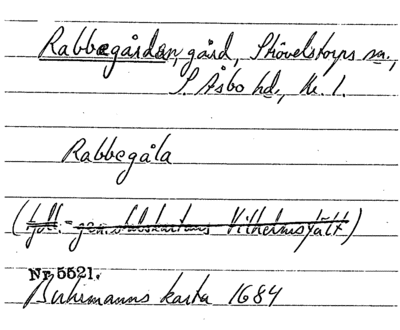 Rabbegården, gård, Stövelstorps sn.,
S. Åsbo hd., Kr. l.
Rabbegåla
Vilhelmsfält)
Nr. 5521.
Buhrmanns karta 1684